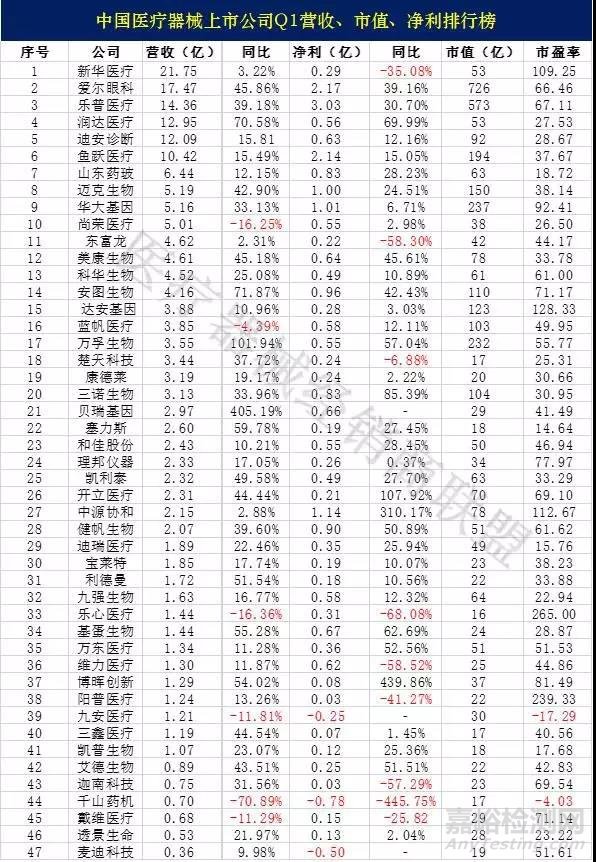 中国医疗器械上市公司Q1营收、市值、净利排行榜
序号 公司 营收（亿） 同比 净利（亿） 同比 市值（亿） 市盈率
1 新华医疗 21.75 3.22% 0.29 -35.08% 53 109.25
2 爱尔眼科 17.47 45.86% 2.17 39.16% 726 66.46
3 乐普医疗 14.36 39.18% 3.03 30.70% 573 67.11
4 润达医疗 12.95 70.58% 0.56 69.99% 53 27.53
5 迪安诊断 12.09 15.81 0.63 12.16% 92 28.67
6 鱼跃医疗 10.42 15.49% 2.14 15.05% 194 37.67
7 山东药玻 6.44 12.15% 0.83 28.23% 63 18.72
8 迈克生物 5.19 42.90% 1.00 24.51% 150 38.14
9 华大基因 5.16 33.13% 1.01 6.71% 237 92.41
10 尚荣医疗 5.01 -16.25% 0.55 2.98% 38 26.50
11 东富龙 4.62 2.31% 0.22 -58.30% 42 44.17
12 美康生物 4.61 45.18% 0.64 45.61% 78 33.78
13 科华生物 4.52 25.08% 0.49 10.89% 61 61.00
14 安图生物 4.16 71.87% 0.96 42.43% 110 71.17
15 达安基因 3.88 10.96% 0.28 3.03% 123 128.33
16 蓝帆医疗 3.85 -4.39% 0.58 12.11% 103 49.95
17 万孚生物 3.55 101.94% 0.55 57.04% 232 55.77
18 楚天科技 3.44 37.72% 0.24 -6.88% 17 25.31
19 康德莱 3.19 19.17% 0.24 2.22% 20 30.66
20 三诺生物 3.13 33.96% 0.83 85.39% 104 30.95
21 贝瑞基因 2.97 405.19% 0.66 - 29 41.49
22 塞力斯 2.60 59.78% 0.19 27.45% 18 14.64
23 和佳股份 2.43 10.21% 0.55 28.45% 50 46.94
24 理邦仪器 2.33 17.05% 0.26 0.37% 34 77.97
25 凯利泰 2.32 49.58% 0.49 27.70% 63 33.29
26 开立医疗 2.31 44.44% 0.21 107.92% 70 69.10
27 中源协和 2.15 2.88% 1.14 310.17% 78 112.67
28 健帆生物 2.07 39.60% 0.90 50.89% 51 61.62
29 迪瑞医疗 1.89 22.46% 0.35 25.94% 49 15.76
30 宝莱特 1.85 17.74% 0.19 10.07% 23 38.23
31 利德曼 1.72 51.54% 0.18 10.56% 22 33.88
32 九强生物 1.63 16.77% 0.58 12.32% 64 22.94
33 乐心医疗 1.44 -16.36% 0.31 -68.08% 16 265.00
34 基蛋生物 1.44 55.28% 0.67 62.69% 24 28.87
35 万东医疗 1.34 11.28% 0.36 52.56% 51 51.53
36 维力医疗 1.30 11.87% 0.62 -58.52% 25 44.86
37 博晖创新 1.29 54.02% 0.08 439.86% 37 81.49
38 阳普医疗 1.24 13.26% 0.03 -41.27% 22 239.33
39 九安医疗 1.21 -11.81% -0.25 - 30 -17.29
40 三鑫医疗 1.19 44.54% 0.07 1.45% 17 40.56
41 凯普生物 1.07 23.07% 0.12 25.36% 18 17.68
42 艾德生物 0.89 43.51% 0.25 51.51% 22 42.83
43 迦南科技 0.75 31.56% 0.03 -57.29% 23 69.54
44 千山药机 0.70 -70.89% -0.78 -445.75% 17 -4.03
45 戴维医疗 0.68 -11.29% 0.15 -25.82 29 71.14
46 透景生命 0.53 21.97% 0.13 2.04% 28 23.22
47 麦迪科技 0.36 9.98% -0.50 - 19 51.61
医疗器械经销商联盟
嘉峪检测网
AnyTesting.com